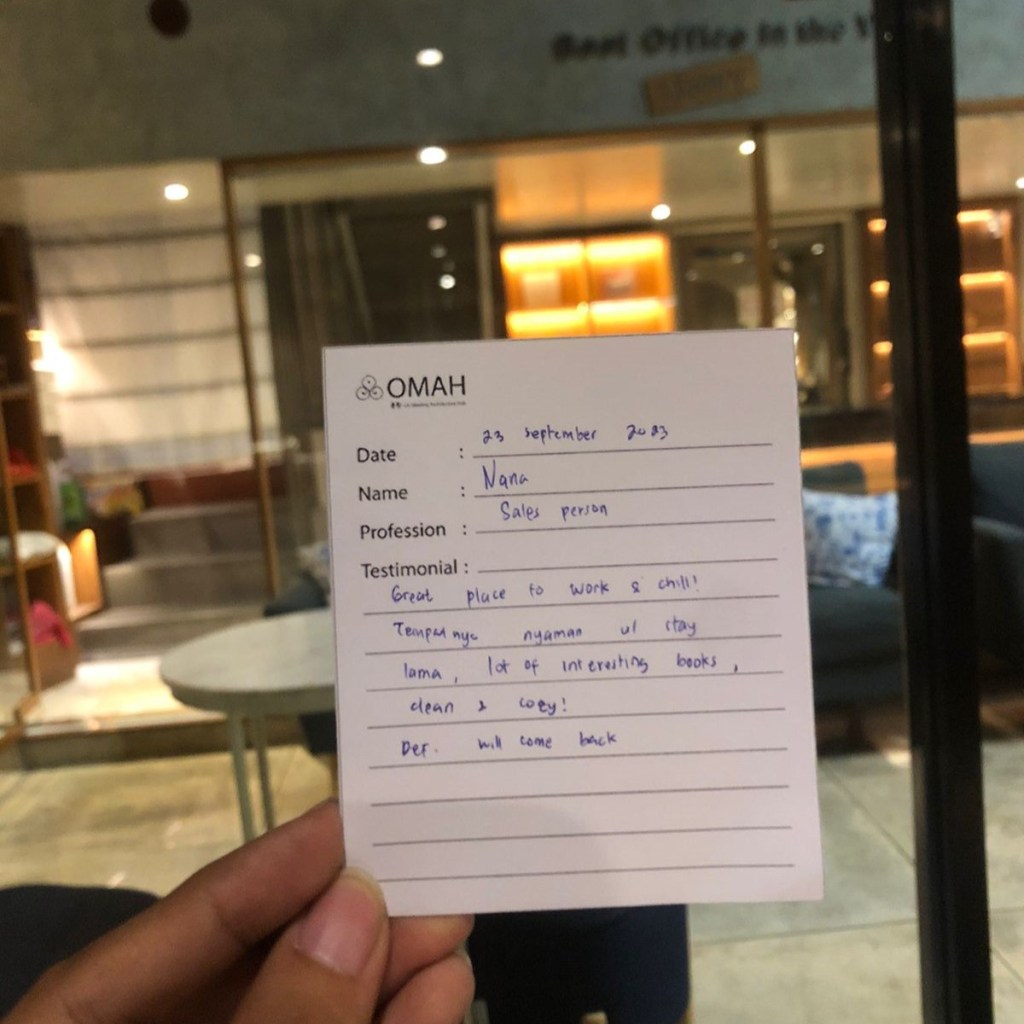 Best Office in the
OMAH
Date : 23 September 2023
Name : Nana
Profession : Sales person
Testimonial :
Great place to work & chill!
Tempatnya nyaman u/ stay
lama, lot of interesting books,
clean & cozy!
Def. will come back